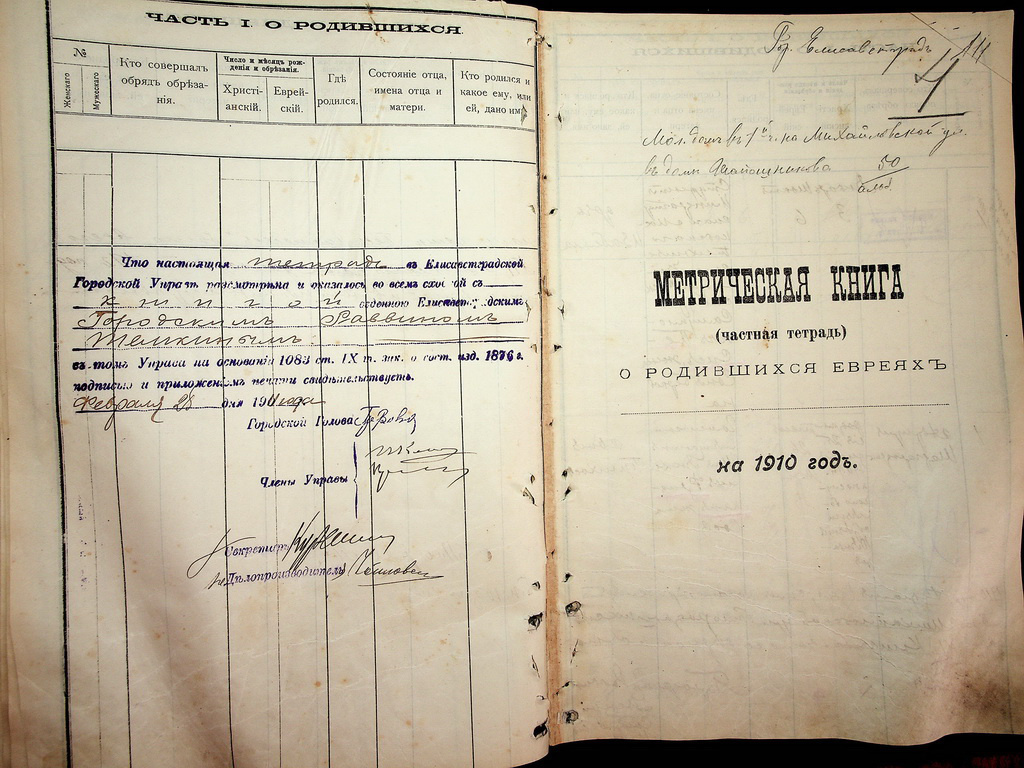 ЧАСТЬ I. О РОДИВШИХСЯ.
№
Женскаго
Мужескаго
Кто совершалъ
обрядъ обрѣза-
нія.
Число и мѣсяцъ рож-
денія и обрѣзанія.
Христі-
анскій.
Еврей-
скій.
Гдѣ
родился.
Состояніе отца,
имена отца и
матери.
Кто родился и
какое ему, или
ей, дано имя
Что настоящая тетрадь въ Елисаветградской
Городской Управѣ разсмотрѣна и оказалось во всемъ сходной съ
книгой веденною Елисаветградскимъ
Городскимъ Раввиномъ
Темкинымъ
въ томъ Управа на основаніи 1083 ст. IX т. зак. о сост. изд. 1876 г.
подписью и приложеніемъ печати свидѣтельствуетъ.
Февраля 28 дня 1911 года
Городской Голова
Члены Управы
Секретарь
Дѣлопроизводитель
Гор. Елисаветградъ
Мол. домъ въ 1й ч. на Михайловской ул.
въ домѣ 50
МЕТРИЧЕСКАЯ КНИГА
(частная тетрадь)
О РОДИВШИХСЯ ЕВРЕЯХЪ
на 1910 годъ.